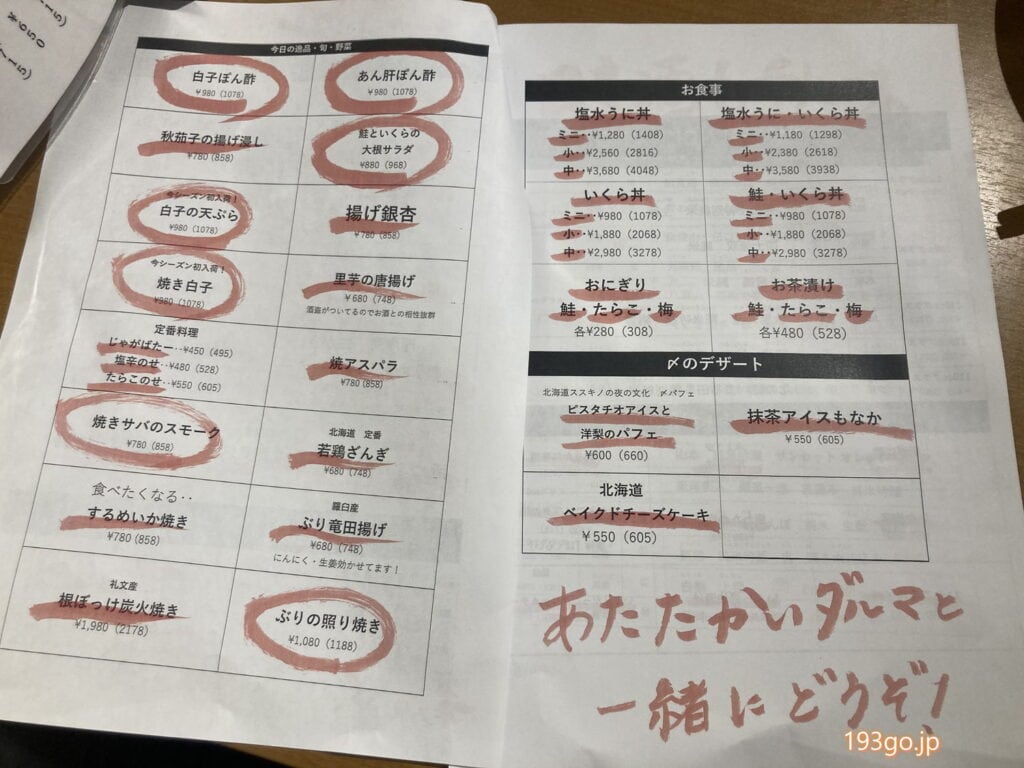 15)
¥650
715)
今日の逸品・旬・野菜
白子ぽん酢
¥980(1078)
あん肝ぽん酢
¥980(1078)
秋茄子の揚げ浸し
¥780(858)
鮭といくらの
大根サラダ
¥880(968)
今シーズン初入荷！
白子の天ぷら
¥980(1078)
揚げ銀杏
¥780(858)
今シーズン初入荷！
焼き白子
¥980(1078)
里芋の唐揚げ
¥680(748)
酒盗がついてるのでお酒との相性抜群
定番料理
じゃがばたー‥¥450(495)
塩辛のせ‥¥480(528)
たらこのせ‥¥550(605)
焼アスパラ
¥780(858)
焼きサバのスモーク
¥780(858)
北海道 定番
若鶏ざんぎ
¥680(748)
食べたくなる‥
するめいか焼き
¥780(858)
羅臼産
ぶり竜田揚げ
¥680(748)
にんにく・生姜効かせてます！
礼文産
根ぼっけ炭火焼き
¥1,980(2178)
ぶりの照り焼き
¥1,080(1188)
お食事
塩水うに丼
ミニ‥¥1,280(1408)
小‥¥2,560(2816)
中‥¥3,680(4048)
塩水うに・いくら丼
ミニ‥¥1,180(1298)
小‥¥2,380(2618)
中‥¥3,580(3938)
いくら丼
ミニ‥¥980(1078)
小‥¥1,880(2068)
中‥¥2,980(3278)
鮭・いくら丼
ミニ‥¥980(1078)
小‥¥1,880(2068)
中‥¥2,980(3278)
おにぎり
鮭・たらこ・梅
各¥280(308)
お茶漬け
鮭・たらこ・梅
各¥480(528)
〆のデザート
北海道ススキノの夜の文化 〆パフェ
ピスタチオアイスと
洋梨のパフェ
¥600(660)
抹茶アイスもなか
¥550(605)
北海道
ベイクドチーズケーキ
¥550(605)
あたたかいダルマと
一緒にどうぞ！
193go.jp